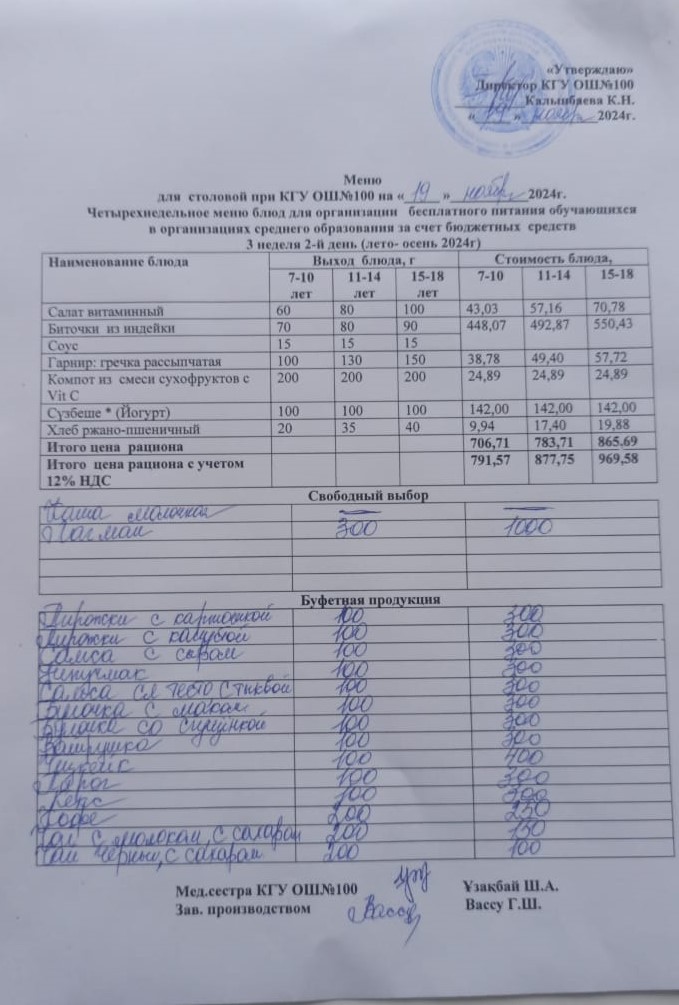 «Утверждаю»
Директор КГУ ОШ№100
Калынбаева К.Н.
« 19 » ноября 2024г.
Меню
для столовой при КГУ ОШ№100 на « 19 » ноября 2024г.
Четырехнедельное меню блюд для организации бесплатного питания обучающихся
в организациях среднего образования за счет бюджетных средств
3 неделя 2-й день (лето- осень 2024г)
Наименование блюда Выход блюда, г Стоимость блюда,
7-10 лет 11-14 лет 15-18 лет 7-10 11-14 15-18
Салат витаминный 60 80 100 43,03 57,16 70,78
Биточки из индейки 70 80 90 448,07 492,87 550,43
Соус 15 15 15
Гарнир: гречка рассыпчатая 100 130 150 38,78 49,40 57,72
Компот из смеси сухофруктов с Vit C 200 200 200 24,89 24,89 24,89
Сузбеше * (Йогурт) 100 100 100 142,00 142,00 142,00
Хлеб ржано-пшеничный 20 35 40 9,94 17,40 19,88
Итого цена рациона 706,71 783,71 865,69
Итого цена рациона с учетом 12% НДС 791,57 877,75 969,58
Свободный выбор
Каша молочная — —
Лагман 300 1000
Буфетная продукция
Пирожки с картошкой 100 300
Пирожки с капустой 100 300
Самса с сыром 100 300
100 300
Самса сл тесто с тыквой 100 300
Булочка с маком 100 300
Булочка со сгущенкой 100 300
Ватрушка 100 300
Чизкейк 100 400
Пирог 100 300
Кекс 100 300
Кофе 200 250
Чай с молоком, с сахаром 200 150
Чай черный, с сахаром 200 100
Мед.сестра КГУ ОШ№100 Ұзақбай Ш.А.
Зав. производством Вассу Г.Ш.